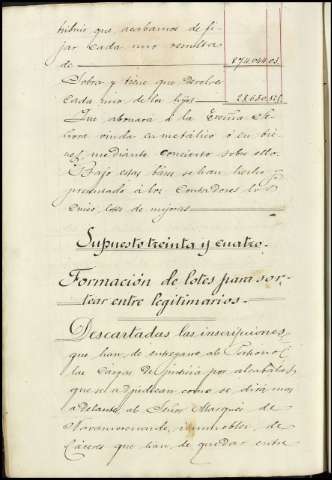 tributo que acabamos de fi-
jar cada uno resulta
de 874.044.03.
Sobra y tiene que devolver
cada uno de los hijos
Que abonará á la Excma Se-
ñora viuda en metálico ó en bie-
nes, mediante concierto sobre ello.
Bajo estas bases se han hecho y
presentado á los Contadores los
cinco lotes de mejoras
Supuesto treinta y cuatro.
Formación de lotes para sor-
tear entre legitimarios.
Descartadas las inscripciones
que han de entregarse al
las cargas de justicia por alcabalas
que se adjudican como se dirá mas
adelante al Señor Marqués de
inmuebles de
Cáceres que han de quedar entre